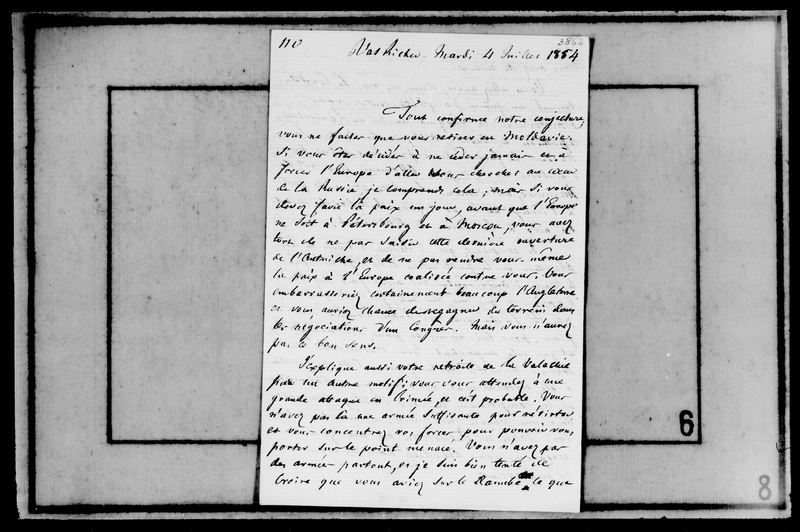 110
3862
Val Richer, Mardi 4 Juillet 1854
Tout confirme notre conjecture,
vous ne faites que vous retirer en Moldavie.
Si vous êtes décidés à ne céder jamais et à
forcer l'Europe d'aller vous chercher au cœur
de la Russie je comprends cela ; mais si vous
devez faire la paix un jour, avant que l'Europe
ne soit à Pétersbourg et à Moscou, vous avez
tort de ne pas saisir cette dernière ouverture
de l'Autriche, et de ne pas rendre vous-même
la paix à l'Europe coalisée contre vous. Vous
embarrasseriez certainement beaucoup l'Angleterre
et vous auriez chance de regagner du terrain dans
les négociations d'un Congrès. Mais vous n'aurez
pas ce bon sens.
J'explique aussi votre retraite de la Valachie
par un autre motif ; vous vous attendez à une
grande attaque en Crimée, et c'est probable. Vous
n'avez pas là une armée suffisante pour résister
et vous concentrez vos forces pour pouvoir vous
porter sur le point menacé. Vous n'avez pas
des armées partout, et je suis bien tenté de
croire que vous aviez sur le Danube ce que
6
8